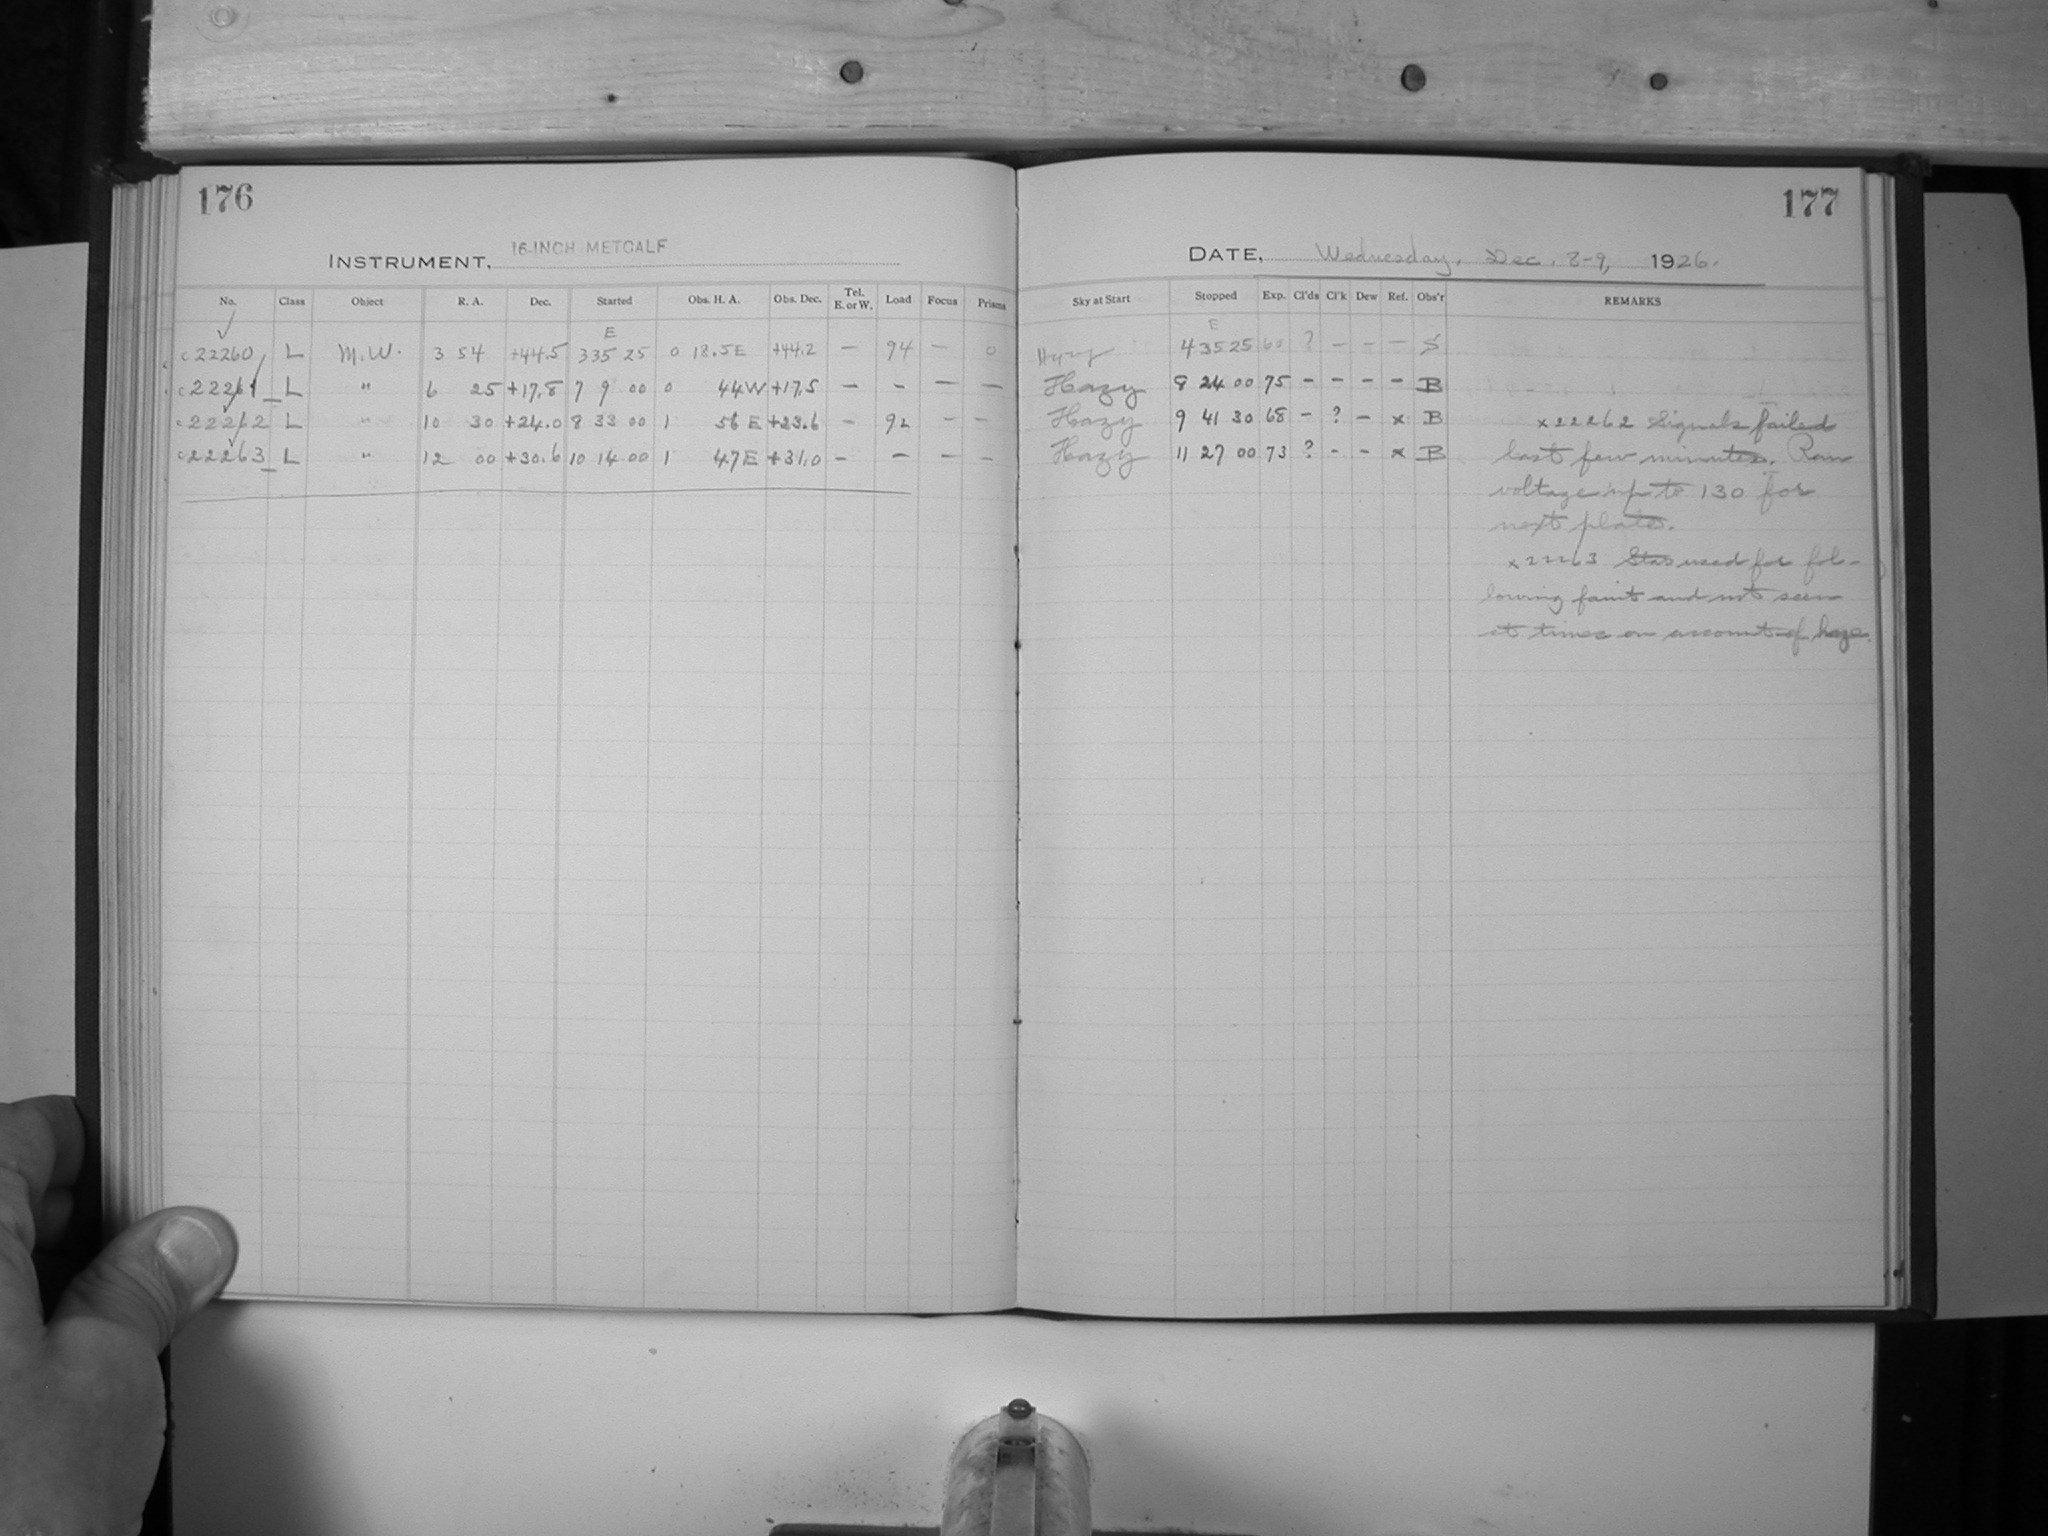 176
177
INSTRUMENT, 16-INCH METCALF
DATE, Wednesday, Dec. 8-9, 1926.
No. Class Object R. A. Dec. Started Obs. H. A. Obs. Dec. Tel. E. or W. Load Focus Prisms Sky at Start Stopped Exp. Cl'ds Cl'k Dew Ref. Obs'r REMARKS
E E
c 22260 L M.W. 3 54 +44.5 3 35 25 0 18.5 E +44.2 — 94 — 0 Hazy 4 35 25 60 ? - - — S
c 22261 L " 6 25 +17.8 7 9 00 0 44 W +17.5 — - — — Hazy 8 24 00 75 - - - - B
c 22262 L " 10 30 +24.0 8 33 00 1 56 E +23.6 - 92 — — Hazy 9 41 30 68 - ? - x B
c 22263 L " 12 00 +30.6 10 14 00 1 47 E +31.0 - - - - Hazy 11 27 00 73 ? - - x B
x 22262 Signals failed
last few minutes. Ran
voltage up to 130 for
next plate.
x 22263 Star used for fol-
lowing faint and not seen
at times on account of haze.